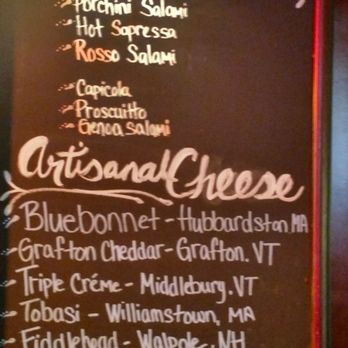 Porchini Salami
Hot Sapressa
Rosso Salami
Capicola
Proscuitto
Genoa Salami
Artisanal Cheese
Bluebonnet - Hubbardston MA
Grafton Cheddar - Grafton. VT
Triple Créme - Middlebury. VT
Tobasi - Williamstown, MA
Fiddlehead - Walpole, NH